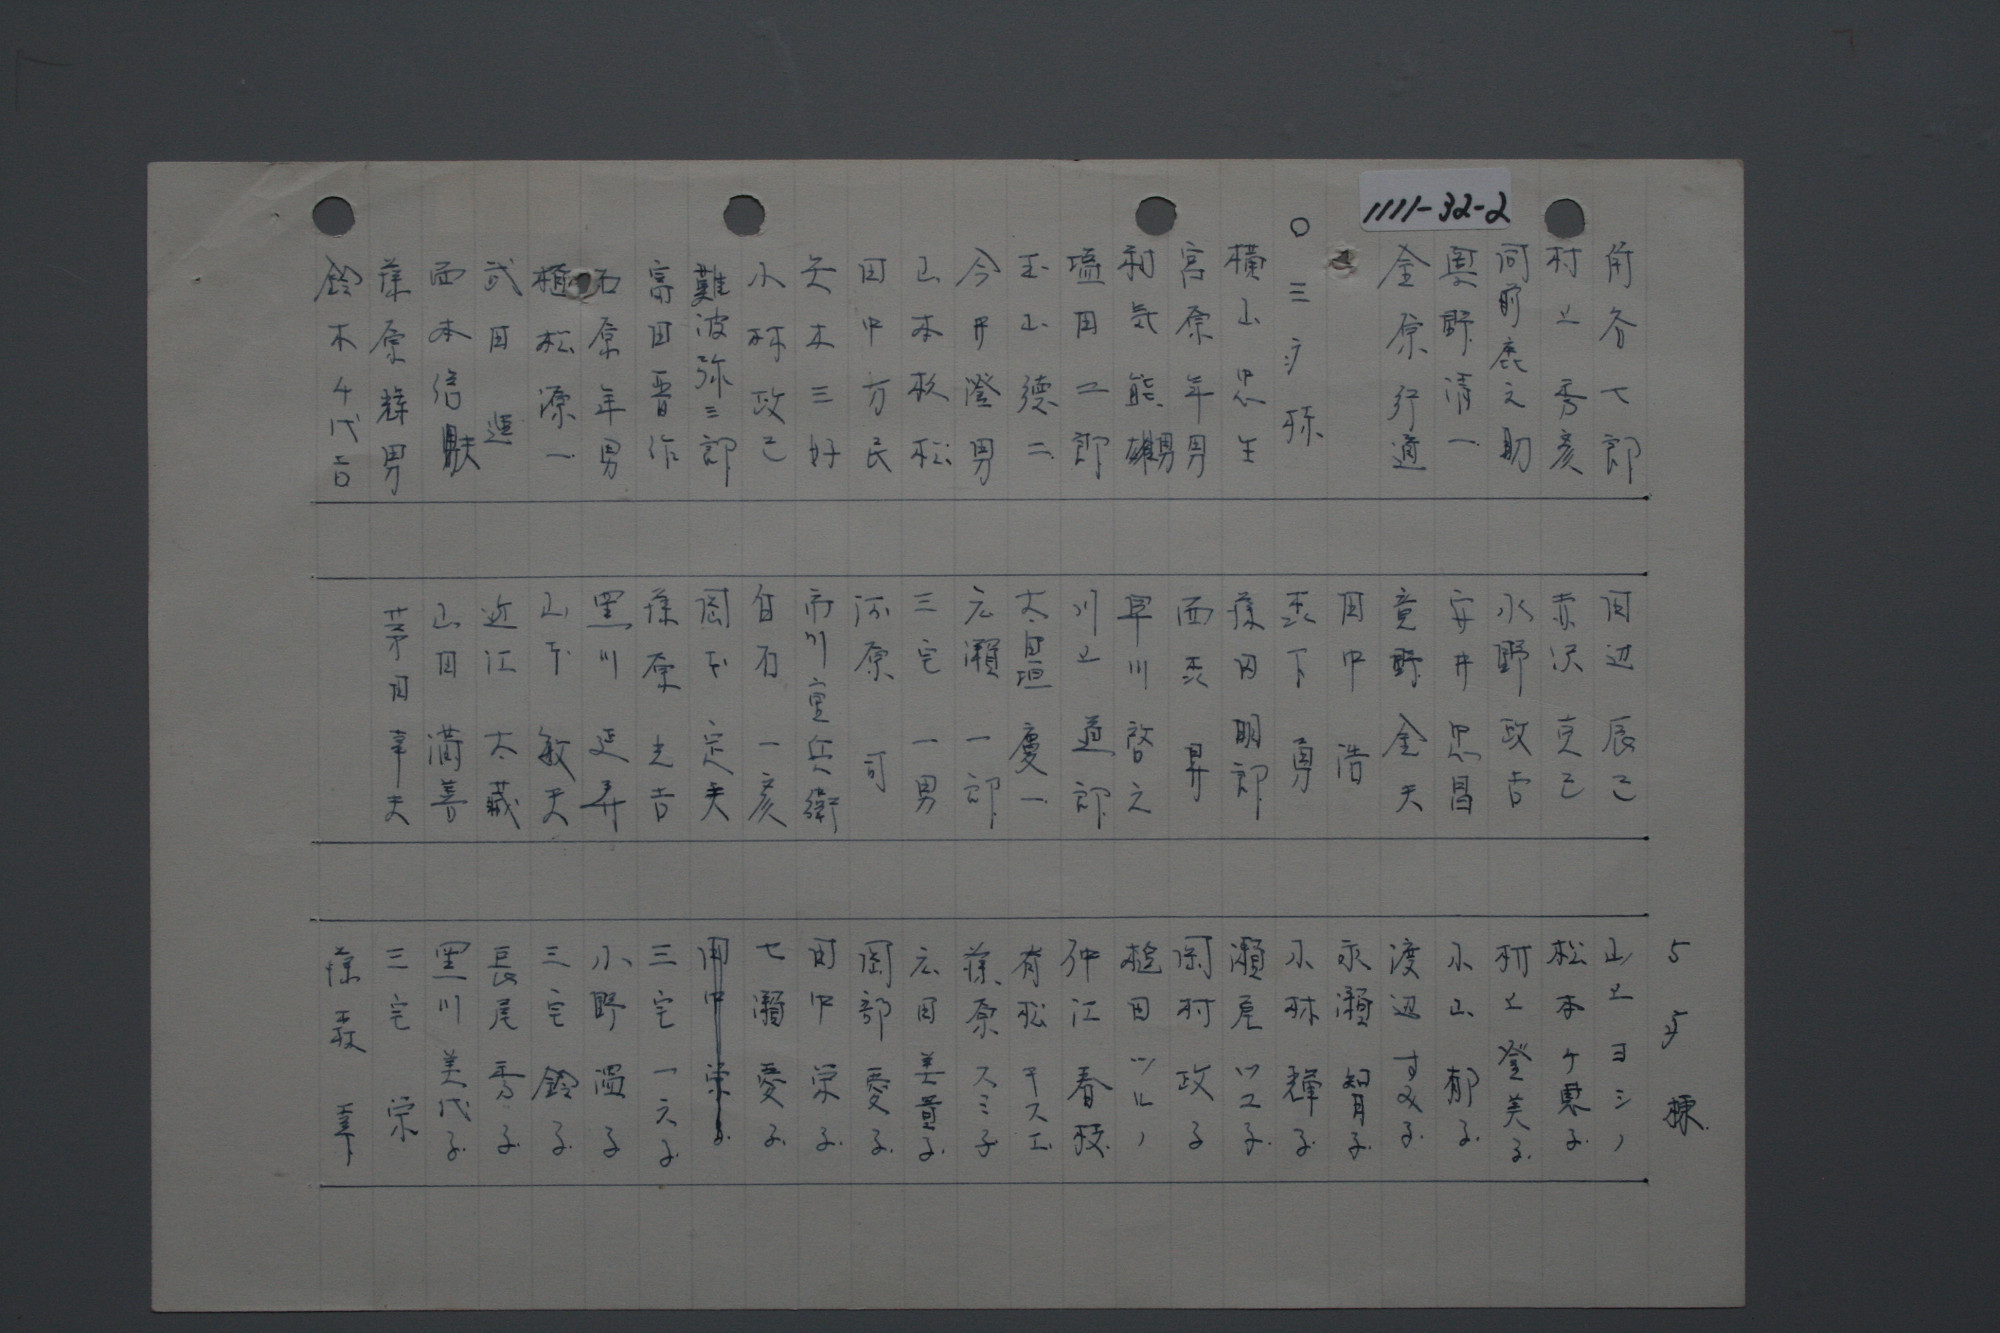 1111-32-2
角谷七郎
村上秀彦
河前鹿之助
奥野清一
金原行適
〇三病棟
横山忠生
宮原年男
和気熊雄
塩田二郎
玉山徳二
今井澄男
山本松松
田中万民
矢木三好
小林政己
難波弥三郎
富田晋作
石原年男
植松源一
武田進
西本信
藤原輝男
鈴木千代吉
田辺辰己
赤沢克己
水野政吉
安井忠昌
竟野金夫
田中浩
森下勇
藤田明郎
西森昇
早川啓之
川上道郎
大垣慶一
広瀬一郎
三宅一男
河原可
市川宣兵衛
白石一彦
岡本定夫
藤原光吉
黒川延弄
山下敏夫
近江大蔵
山田満善
茅田幸夫
5病棟
山上ヨシノ
松本ケ恵子
村上登美子
小山郁子
渡辺すみ子
永瀬智子
小林輝子
瀬尾ツユ子
岡村政子
植田ツルノ
沖江春枝
有松チスエ
藤原スミ子
広田美貴子
岡部愛子
田中栄子
七瀬愛子
田中栄子
三宅一六子
小野温子
三宅鈴子
長尾秀子
黒川美代子
三宅栄
藤森華